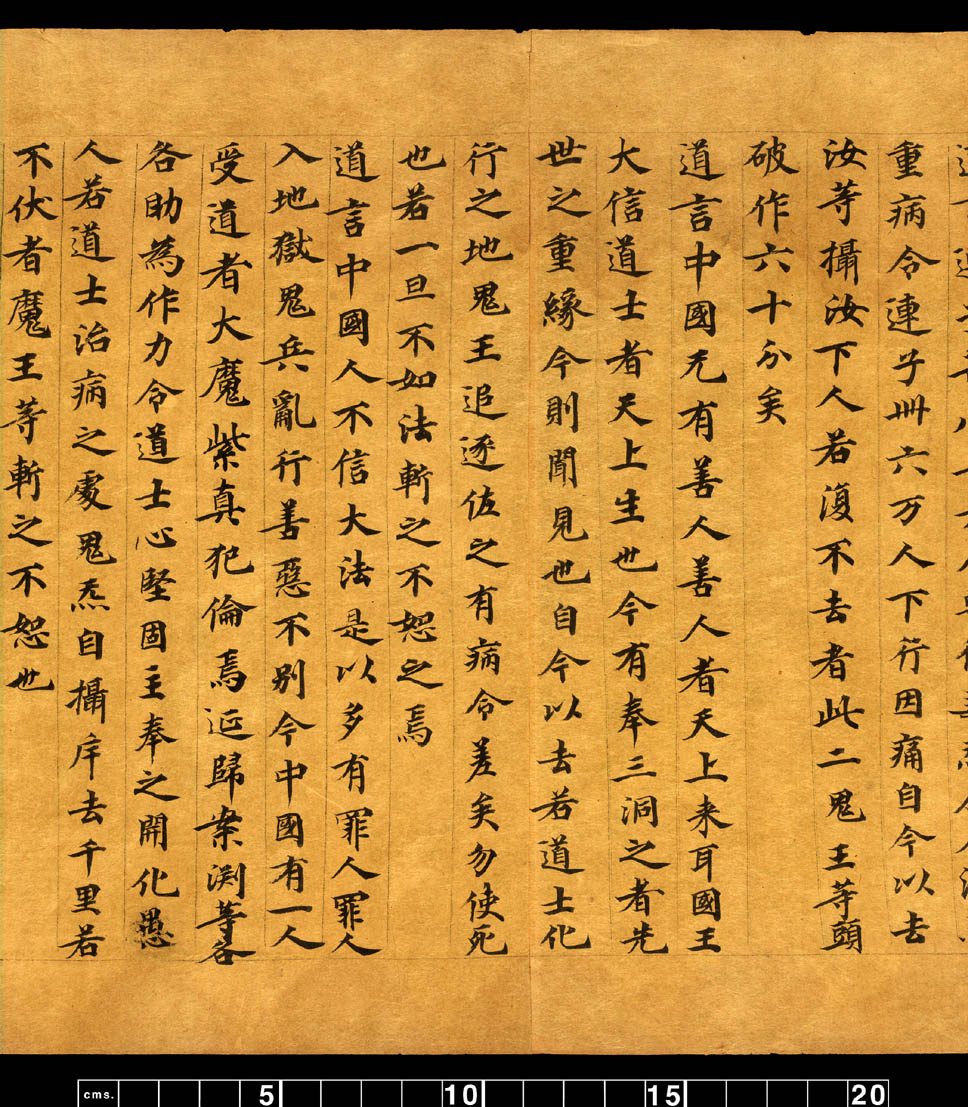 重病令連子卌六万人下行因痛自今以去
汝等攝汝下人若復不去者此二鬼王等頭
破作六十分矣
道言中國无有善人善人者天上来耳國王
大信道士者天上生也今有奉三洞之者先
世之重緣今則聞見也自今以去若道士化
行之地鬼王追逐佐之有病令差矣勿使死
也若一旦不如法斬之不恕之焉
道言中國人不信大法是以多有罪人罪人
入地獄鬼兵亂行善惡不別今中國有一人
受道者大魔紫真犯倫焉涎歸案渕等各
各助為作力令道士心堅固主奉之開化愚
人若道士治病之處鬼炁自攝斥去千里若
不伏者魔王等斬之不恕也
cms. 5 10 15 20